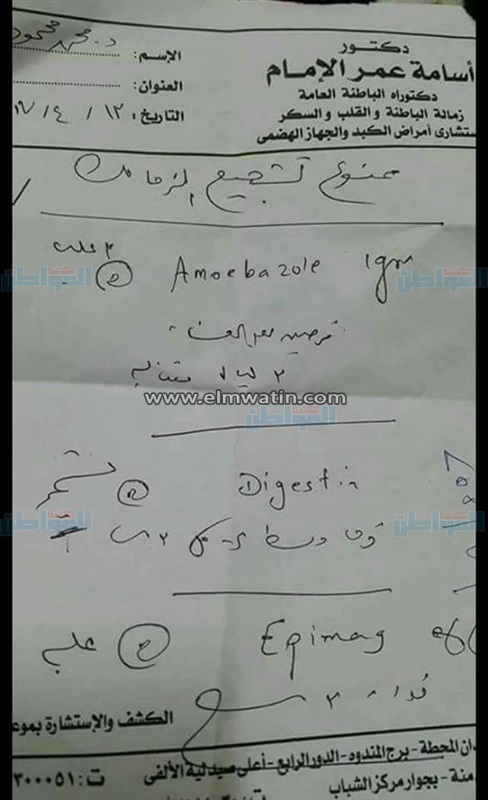 دكتور
أسامة عمر الإمام
دكتوراه الباطنة العامة
زمالة الباطنة والقلب والسكر
ستشارى أمراض الكبد والجهاز الهضمى
الإسم: د. محمد محمود
العنوان:
التاريخ: ١٢ / ٤ /
ممنوع تشجيع الزمالك
Amoebazole 1gm
علب
قرصين بعد
٣ ليال متتاليه
www.elmwatin.com
المواطن
Digestin
Epimag eff
علبه
فوار
الكشف والإستشارة بموع
دان المحطة - برج المندوه - الدور الرابع - أعلى صيدلية الألفى
منة - بجوار مركز الشباب ت: ٣٠٠٠٥١